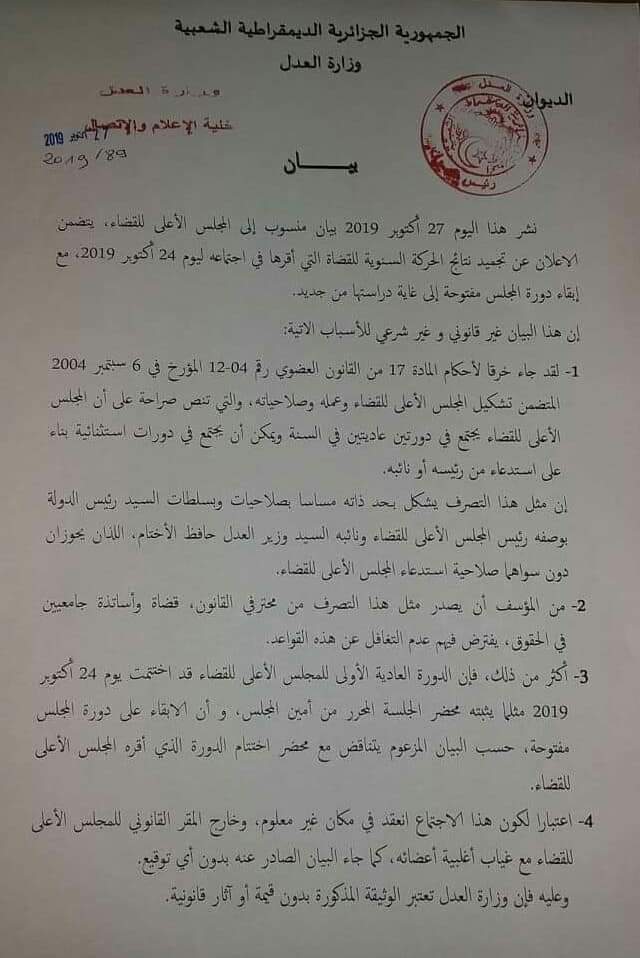 الجمهورية الجزائرية الديمقراطية الشعبية
وزارة العدل
الديوان
وزارة العدل
خلية الإعلام والاتصال
27 أكتوبر 2019
2019/89
بيـــــان
نشر هذا اليوم 27 أكتوبر 2019 بيان منسوب إلى المجلس الأعلى للقضاء، يتضمن
الاعلان عن تجميد نتائج الحركة السنوية للقضاة التي أقرها في اجتماعه ليوم 24 أكتوبر 2019، مع
إبقاء دورة المجلس مفتوحة إلى غاية دراستها من جديد.
إن هذا البيان غير قانوني و غير شرعي للأسباب الاتية:
1- لقد جاء خرقا لأحكام المادة 17 من القانون العضوي رقم 04-12 المؤرخ في 6 سبتمبر 2004
المتضمن تشكيل المجلس الأعلى للقضاء وعمله وصلاحياته، والتي تنص صراحة على أن المجلس
الأعلى للقضاء يجتمع في دورتين عاديتين في السنة ويمكن أن يجتمع في دورات استثنائية بناء
على استدعاء من رئيسه أو نائبه.
إن مثل هذا التصرف يشكل بحد ذاته مساسا بصلاحيات وبسلطات السيد رئيس الدولة
بوصفه رئيس المجلس الأعلى للقضاء ونائبه السيد وزير العدل حافظ الأختام، اللذان يحوزان
دون سواهما صلاحية استدعاء المجلس الأعلى للقضاء.
2- من المؤسف أن يصدر مثل هذا التصرف من محترفي القانون، قضاة وأساتذة جامعيين
في الحقوق، يفترض فيهم عدم التغافل عن هذه القواعد.
3- أكثر من ذلك، فإن الدورة العادية الأولى للمجلس الأعلى للقضاء قد اختتمت يوم 24 أكتوبر
2019 مثلما يثبته محضر الجلسة المحرر من أمين المجلس، و أن الابقاء على دورة المجلس
مفتوحة، حسب البيان المزعوم يتناقض مع محضر اختتام الدورة الذي أقره المجلس الأعلى
للقضاء.
4- اعتبارا لكون هذا الاجتماع انعقد في مكان غير معلوم، وخارج المقر القانوني للمجلس الأعلى
للقضاء مع غياب أغلبية أعضائه، كما جاء البيان الصادر عنه بدون أي توقيع.
وعليه فإن وزارة العدل تعتبر الوثيقة المذكورة بدون قيمة أو آثار قانونية.